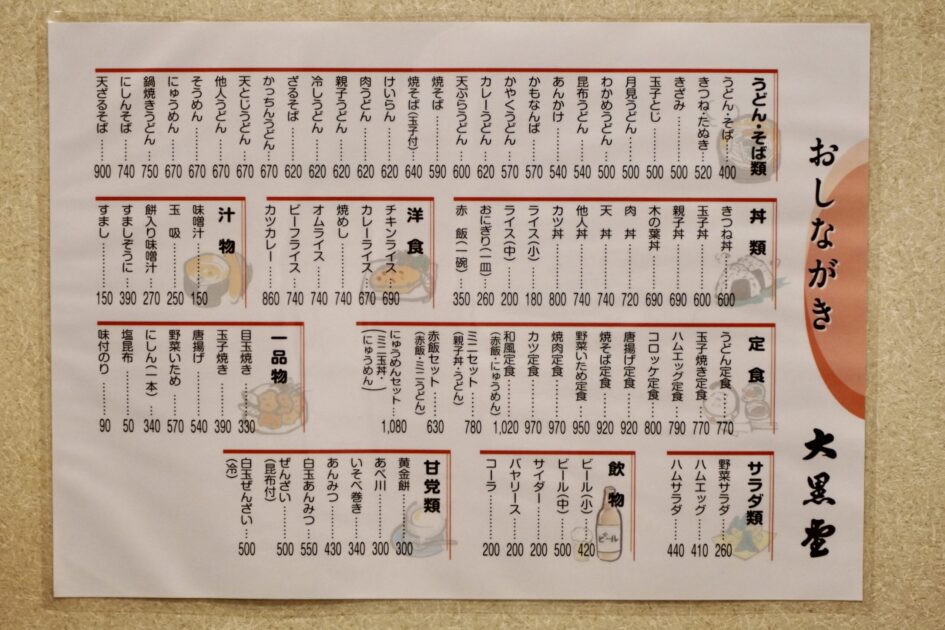 おしながき
大黒堂
うどん・そば類
うどん・そば……400
きつね・たぬき……520
きざみ……500
玉子とじ……500
月見うどん……500
わかめうどん……500
昆布うどん……540
あんかけ……540
かもなんば……570
かやくうどん……570
カレーうどん……620
天ぷらうどん……600
焼そば……590
焼そば(玉子付)……640
けいらん……620
肉うどん……620
親子うどん……620
冷しうどん……620
ざるそば……620
かっちんうどん……670
天とじうどん……670
他人うどん……670
そうめん……670
にゅうめん……670
鍋焼きうどん……750
にしんそば……740
天ざるそば……900
丼類
きつね丼……600
玉子丼……600
親子丼……690
木の葉丼……690
肉丼……720
天丼……740
他人丼……740
カツ丼……800
ライス(小)……180
ライス(中)……200
おにぎり(一皿)……260
赤飯(一碗)……350
洋食
チキンライス……690
カレーライス……670
焼めし……740
オムライス……740
ビーフライス……740
カツカレー……860
汁物
味噌汁……150
玉吸……250
餅入り味噌汁……270
すましぞうに……390
すまし……150
定食
うどん定食……770
玉子焼き定食……770
ハムエッグ定食……790
コロッケ定食……800
唐揚げ定食……920
焼そば定食……920
野菜いため定食……950
焼肉定食……970
カツ定食……970
和風定食……1,020
(赤飯・にゅうめん)
ミニセット……780
(親子丼・うどん)
赤飯セット……630
(赤飯・ミニうどん)
にゅうめんセット……1,080
(ミニ玉丼・にゅうめん)
一品物
目玉焼き……330
玉子焼き……390
唐揚げ……540
野菜いため……570
にしん(一本)……340
塩昆布……50
味付のり……90
サラダ類
野菜サラダ……260
ハムエッグ……410
ハムサラダ……440
飲物
ビール
ビール(小)……420
ビール(中)……500
サイダー……200
バヤリース……200
コーラ……200
甘党類
黄金餅……300
あべ川……300
いそべ巻き……340
あんみつ……430
白玉あんみつ……550
ぜんざい……500
(昆布付)
白玉ぜんざい……500
(〃)